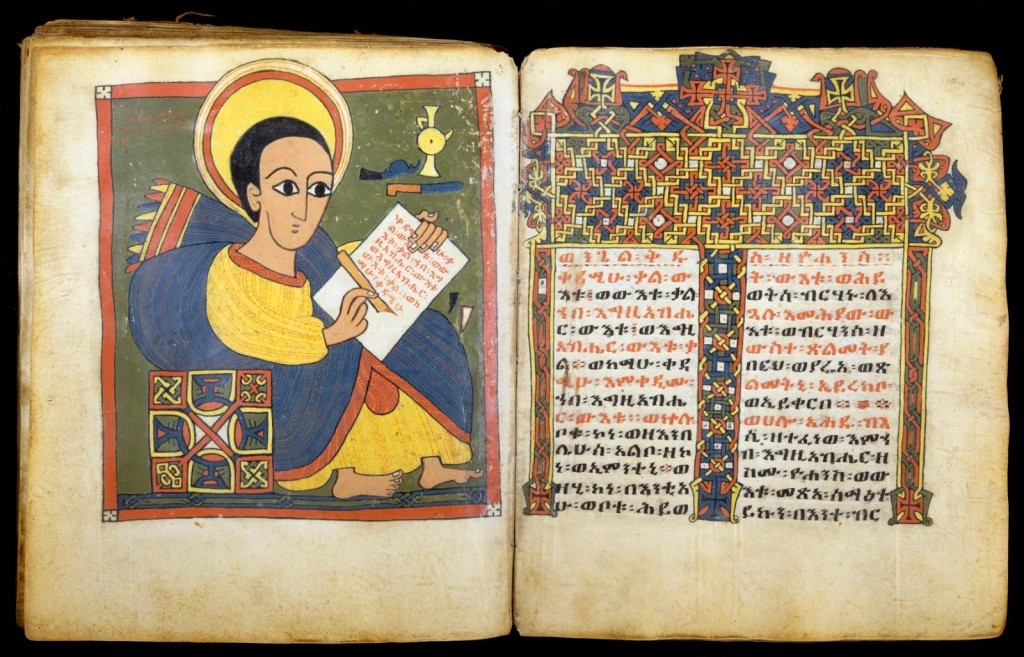 ወንጌል፡ቅዱ
ቀዳሚሁ፡ቃል፡ው
እቱ፡ወውእቱ፡ቃል
ኀበ፡እግዚአብሔ
ር፡ውእቱ፡ወእግዚ
አብሔር፡ውእቱ፡ቃ
ል፡ወከማሁ፡ቀዳ
ሚሁ፡እምቀዲሙ፡
ኀበ፡እግዚአብሔ
ር፡ውእቱ፡፡ወኵሉ
ቦቱ፡ኮነ፡ወዘእንበ
ሌሁሰ፡አልቦ፡ዘኮ
ነ፡ወኢምንትኒ፡ወ
ዘሂ፡ኮነ፡በእንቲአ
ሁ፡ወቦቱ፡ሕይወ
ስ፡ዘዮሐንስ፡፡
ት፡ውእቱ፡ወሕይ
ወትሰ፡ብርሃኑ፡ለእ
ጓለ፡እመሕያው፡ው
እቱ፡ወብርሃንሰ፡ዘ
ውስተ፡ጽልመት፡ያ
በርህ፡ወያርኢ፡ወጽ
ልመትኒ፡ኢይረክቦ
ወኢይቀርቦ፡፡
ወሀሎ፡አሐዱ፡ብእ
ሲ፡ዘተፈነወ፡እምኀ
በ፡እግዚአብሔር፡ዘ
ስሙ፡ዮሐንስ፡ወው
እቱ፡መጽአ፡ስምዐ፡
ይኩን፡በእንተ፡ብር